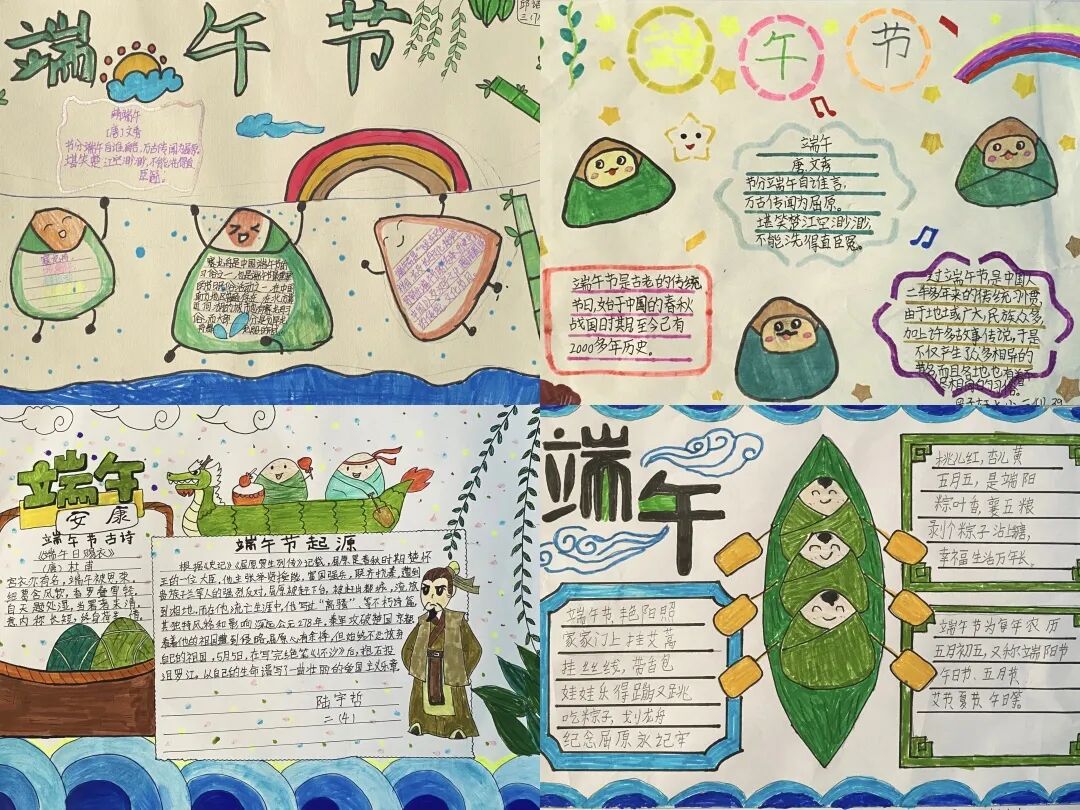 端午节
端午
〔唐〕文秀
节分端午自谁言,万古传闻为屈原
堪笑楚江空渺渺,不能洗得直
臣冤。
赛龙舟是中国端午节的
端午节
端午
唐.文秀
节分端午自谁言,
万古传闻为屈原。
堪笑楚江空渺渺,
不能洗得直臣冤。
端午节是古老的传统
节日,始于中国的春秋
战国时期至今已有
2000多年历史。
过端午节是中国人
二千多年来的传统习惯,
由于地域广大,民族众多,
加上许多故事传说,于是
不仅产生了众多相异的
节名而且各地也有着不
尽相同的习俗。
端午
安康
端午节古诗
《端午日赐衣》
(唐)杜甫
宫衣亦有名,端午被恩荣。
细葛含风软,香罗叠雪轻。
自天题处湿,当暑着来清。
意内称长短,终身荷圣情。
端午节起源
根据《史记》《屈原贾生列传》记载,屈原是春秋时期楚怀
王的一位大臣,他主张举贤授能,富国强兵,联齐抗秦,遭到
贵族子兰等人的强烈反对,屈原被赶下台,被赶出都城,流放
到湘地,而在他流亡生涯中,他写出“离骚”,等不朽诗篇,
其独特风格和影响深远公元278年,秦军攻破楚国京都
看着他的祖国遭到侵略,屈原心有余悸,但始终不忍放弃
自己的祖国,5月5日,在写完绝笔《怀沙》后,抱石投
汨罗江。以自己的生命谱写了一曲壮丽的爱国主义乐章
陆宇哲
二(4)
端午
端午节,艳阳照
家家门上挂艾蒿
挂丝线,带香包
娃娃乐得蹦又跳
吃粽子,划龙舟
纪念屈原永记牢
桃儿红,杏儿黄
五月五,是端阳
粽叶香,裹五粮
剥个粽子沾上糖,
幸福生活万年长。
端午节为每年农历
五月初五,又称端阳节
午日节、五月节、
艾节夏节、午日等。